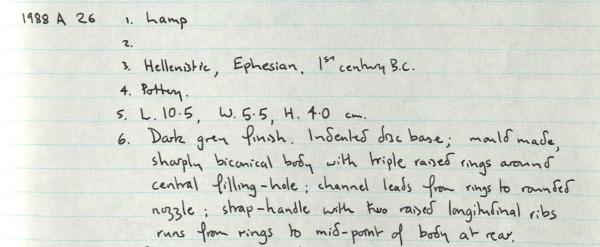 1988 A 26 1. Lamp
2.
3. Hellenistic, Ephesian, 1st century B.C.
4. Pottery.
5. L. 10.5, W. 5.5, H. 4.0 cm.
6. Dark grey finish. Indented disc base; mould made,
sharply biconical body with triple raised rings around
central filling-hole; channel leads from rings to rounded
nozzle; strap-handle with two raised longitudinal ribs
runs from rings to mid-point of body at rear.